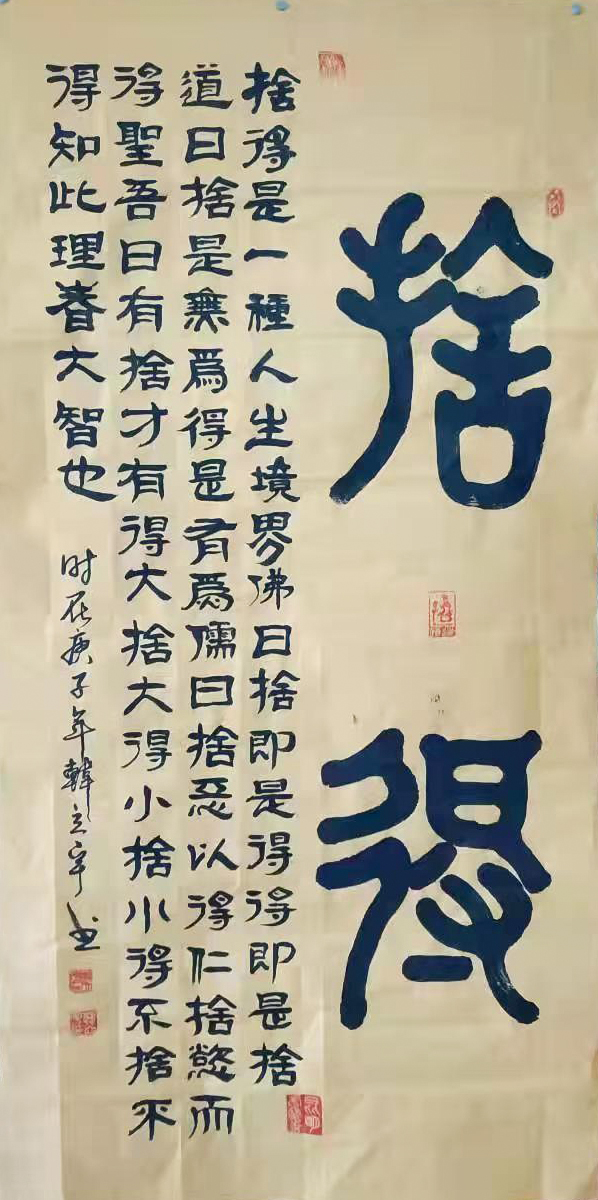 捨得
捨得是一種人生境界佛曰捨即是得得即是捨
道曰捨是無爲得是有爲儒曰捨惡以得仁捨慾而
得聖吾曰有捨才有得大捨大得小捨小得不捨不
得知此理者大智也
时在庚子年韓立宇书